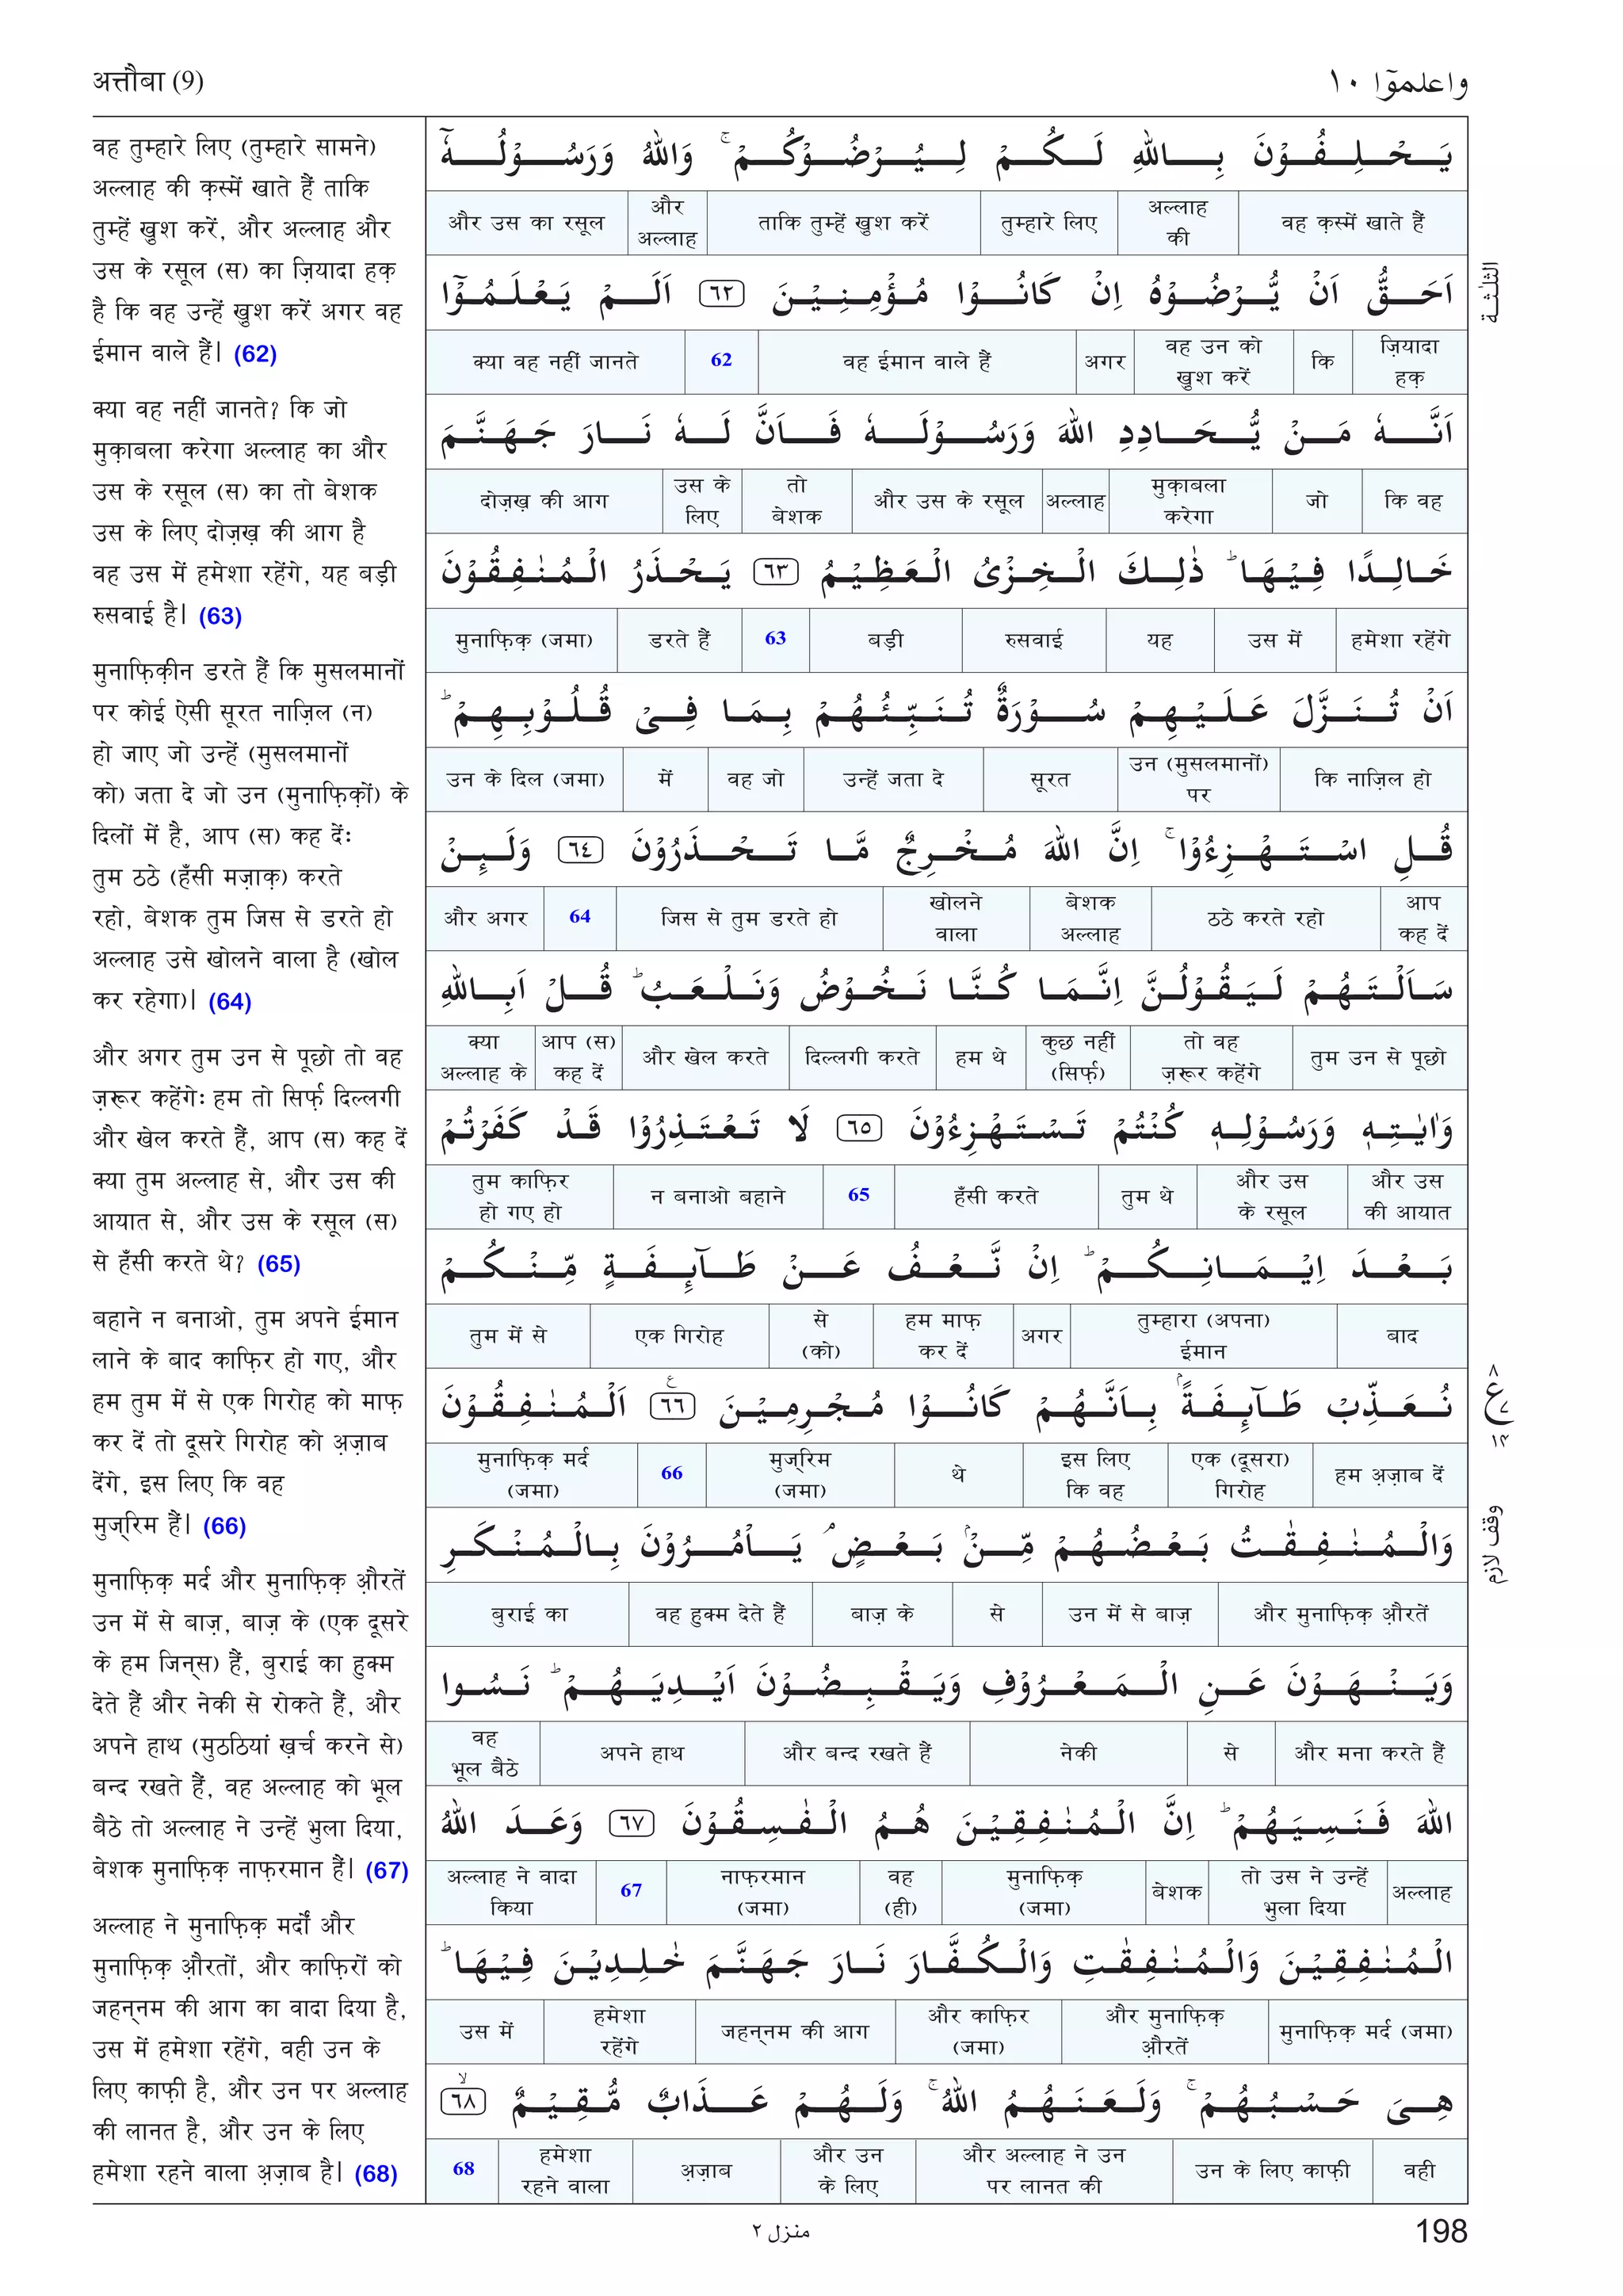 अत्तौबा (9)
واعلموٓا ١٠
वह तुम्हारे लिए (तुम्हारे सामने)
अल्लाह की क़स्में खाते हैं ताकि
तुम्हें खुश करें, और अल्लाह और
उस के रसूल (स) का ज़ियादा हक़
है कि वह उन्हें खुश करें अगर वह
ईमान वाले हैं। (62)
क्या वह नहीं जानते? कि जो
मुक़ाबला करेगा अल्लाह का और
उस के रसूल (स) का तो बेशक
उस के लिए दोज़ख़ की आग है
वह उस में हमेशा रहेंगे, यह बड़ी
रुसवाई है। (63)
मुनाफ़िक़ीन डरते हैं कि मुसलमानों
पर कोई ऐसी सूरत नाज़िल (न)
हो जाए जो उन्हें (मुसलमानों
को) जता दे जो उन (मुनाफ़िक़ों) के
दिलों में है, आप (स) कह दें:
तुम ठठे (हँसी मज़ाक़) करते
रहो, बेशक तुम जिस से डरते हो
अल्लाह उसे खोलने वाला है (खोल
कर रहेगा)। (64)
और अगर तुम उन से पूछो तो वह
ज़रूर कहेंगे: हम तो सिर्फ़ दिल्लगी
और खेल करते हैं, आप (स) कह दें
क्या तुम अल्लाह से, और उस की
आयात से, और उस के रसूल (स)
से हँसी करते थे? (65)
बहाने न बनाओ, तुम अपने ईमान
लाने के बाद काफ़िर हो गए, और
हम तुम में से एक गिरोह को माफ़
कर दें तो दूसरे गिरोह को अ़ज़ाब
देंगे, इस लिए कि वह
मुज्रिम हैं। (66)
मुनाफ़िक़ मर्द और मुनाफ़िक़ औ़रतें
उन में से बाज़, बाज़ के (एक दूसरे
के हम जिन्स) हैं, बुराई का हुक्म
देते हैं और नेकी से रोकते हैं, और
अपने हाथ (मुठठियां ख़र्च करने से)
बन्द रखते हैं, वह अल्लाह को भूल
बैठे तो अल्लाह ने उन्हें भुला दिया,
बेशक मुनाफ़िक़ नाफ़रमान हैं। (67)
अल्लाह ने मुनाफ़िक़ मर्दों और
मुनाफ़िक़ औ़रतों, और काफ़िरों को
जहन्नम की आग का वादा दिया है,
उस में हमेशा रहेंगे, वही उन के
लिए काफ़ी है, और उन पर अल्लाह
की लानत है, और उन के लिए
हमेशा रहने वाला अ़ज़ाब है। (68)
يَحْلِفُوْنَ بِاللّٰهِ لَكُمْ لِيُرْضُوْكُمْ ۚ وَاللّٰهُ وَرَسُوْلُهٗٓ
वह क़स्में खाते हैं अल्लाह की तुम्हारे लिए ताकि तुम्हें खुश करें और अल्लाह और उस का रसूल
اَحَقُّ اَنْ يُّرْضُوْهُ اِنْ كَانُوْا مُؤْمِنِيْنَ ٦٢ اَلَمْ يَعْلَمُوْٓا
ज़ियादा हक़ कि वह उन को खुश करें अगर वह ईमान वाले हैं 62 क्या वह नहीं जानते
اَنَّهٗ مَنْ يُّحَادِدِ اللّٰهَ وَرَسُوْلَهٗ فَاَنَّ لَهٗ نَارَ جَهَنَّمَ
कि वह जो मुक़ाबला करेगा अल्लाह और उस के रसूल तो बेशक उस के लिए दोज़ख़ की आग
خَالِدًا فِيْهَا ۭ ذٰلِكَ الْخِزْيُ الْعَظِيْمُ ٦٣ يَحْذَرُ الْمُنٰفِقُوْنَ
हमेशा रहेंगे उस में यह रुसवाई बड़ी 63 डरते हैं मुनाफ़िक़ (जमा)
اَنْ تُنَزَّلَ عَلَيْهِمْ سُوْرَةٌ تُنَبِّئُهُمْ بِمَا فِيْ قُلُوْبِهِمْ ۭ
कि नाज़िल हो उन (मुसलमानों) पर सूरत उन्हें जता दे वह जो में उन के दिल (जमा)
قُلِ اسْتَهْزِءُوْا ۚ اِنَّ اللّٰهَ مُخْرِجٌ مَّا تَحْذَرُوْنَ ٦٤ وَلَىِٕنْ
आप कह दें ठठे करते रहो बेशक अल्लाह खोलने वाला जिस से तुम डरते हो 64 और अगर
سَاَلْتَهُمْ لَيَقُوْلُنَّ اِنَّمَا كُنَّا نَخُوْضُ وَنَلْعَبُ ۭ قُلْ اَبِاللّٰهِ
तुम उन से पूछो तो वह ज़रूर कहेंगे कुछ नहीं (सिर्फ़) हम थे दिल्लगी करते और खेल करते आप (स) कह दें क्या अल्लाह के
وَاٰيٰتِهٖ وَرَسُوْلِهٖ كُنْتُمْ تَسْتَهْزِءُوْنَ ٦٥ لَا تَعْتَذِرُوْا قَدْ كَفَرْتُمْ
और उस की आयात और उस के रसूल तुम थे हँसी करते 65 न बनाओ बहाने तुम काफ़िर हो गए हो
بَعْدَ اِيْمَانِكُمْ ۭ اِنْ نَّعْفُ عَنْ طَآىِٕفَةٍ مِّنْكُمْ
बाद तुम्हारा (अपना) ईमान अगर हम माफ़ कर दें से (को) एक गिरोह तुम में से
نُعَذِّبْ طَآىِٕفَةًۢ بِاَنَّهُمْ كَانُوْا مُجْرِمِيْنَ ٦٦ اَلْمُنٰفِقُوْنَ
हम अ़ज़ाब दें एक (दूसरा) गिरोह इस लिए कि वह थे मुज्रिम (जमा) 66 मुनाफ़िक़ मर्द (जमा)
وَالْمُنٰفِقٰتُ بَعْضُهُمْ مِّنْۢ بَعْضٍ ۘ يَاْمُرُوْنَ بِالْمُنْكَرِ
और मुनाफ़िक़ औ़रतें उन में से बाज़ से बाज़ के वह हुक्म देते हैं बुराई का
وَيَنْهَوْنَ عَنِ الْمَعْرُوْفِ وَيَقْبِضُوْنَ اَيْدِيَهُمْ ۭ نَسُوا
और मना करते हैं से नेकी और बन्द रखते हैं अपने हाथ वह भूल बैठे
اللّٰهَ فَنَسِيَهُمْ ۭ اِنَّ الْمُنٰفِقِيْنَ هُمُ الْفٰسِقُوْنَ ٦٧ وَعَدَ اللّٰهُ
अल्लाह तो उस ने उन्हें भुला दिया बेशक मुनाफ़िक़ (जमा) वह (ही) नाफ़रमान (जमा) 67 अल्लाह ने वादा किया
الْمُنٰفِقِيْنَ وَالْمُنٰفِقٰتِ وَالْكُفَّارَ نَارَ جَهَنَّمَ خٰلِدِيْنَ فِيْهَا ۭ
मुनाफ़िक़ मर्द (जमा) और मुनाफ़िक़ औ़रतें और काफ़िर (जमा) जहन्नम की आग हमेशा रहेंगे उस में
هِيَ حَسْبُهُمْ ۚ وَلَعَنَهُمُ اللّٰهُ ۚ وَلَهُمْ عَذَابٌ مُّقِيْمٌ ٦٨
वही उन के लिए काफ़ी और अल्लाह ने उन पर लानत की और उन के लिए अ़ज़ाब हमेशा रहने वाला 68
الثلٰثة
ع ١٤
وقف لازم
منزل ٢
198